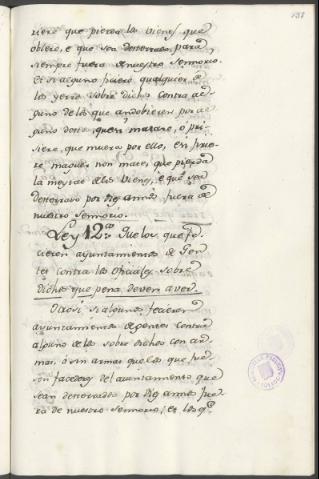 131
riere que pierda los bienes que
obiere, e que sea desterrado para
siempre fuera de nuestro Sennorio.
Et si alguno ficiere qualquier de
los yerros sobre dichos contra al-
guno de los que andobieren por al-
guno destos quem matare, o fi-
riere, que muera por ello, en fue-
re, maguer non mate, que pierda
la meytad de los bienes, e que sea
desterrado por diez annos fuera de
nuestro Sennorio.
Ley 12.ª De los que fi-
cieren ayuntamiento de Gen-
tes contra los Oficiales sobre
dichos que pena deven aver.
Otrosi si algunos ficieren
ayuntamiento de gentes contra
alguno de los sobre dichos con ar-
mas, o sin armas que los que fue-
ron facedores del ayuntamiento que
sean desterrados por diez annos fue-
ra de nuestro Sennorio, et los q.e